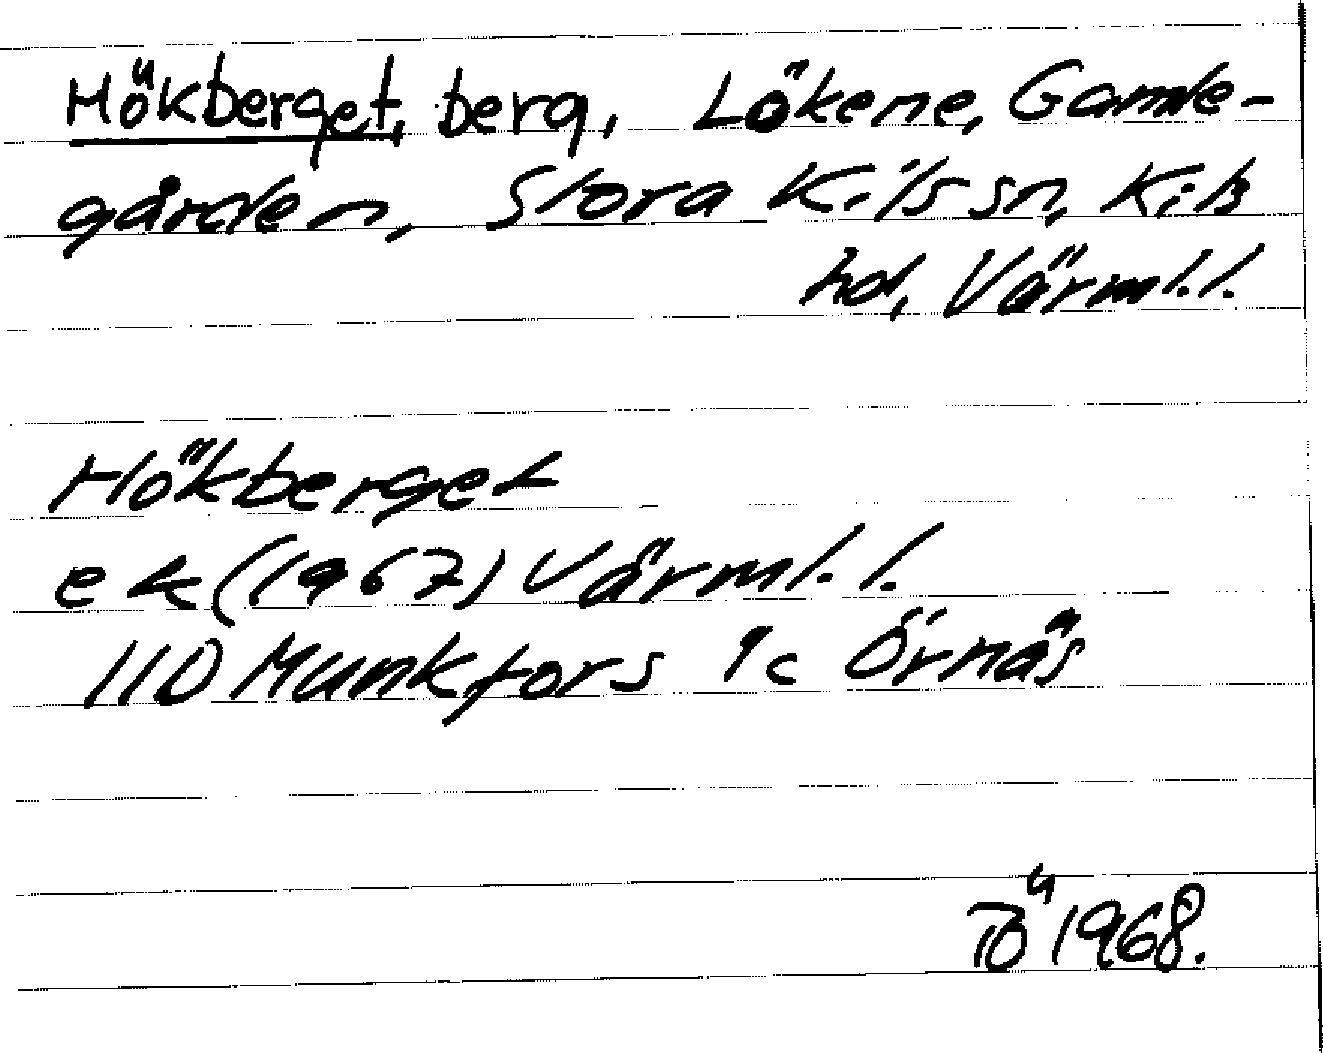 Hökberget, berg, Lökene, Gamle-
gården, Stora Kils sn, Kils
hd, Värml. l.
Hökberget
ek (1967) Värml. l.
11D Munkfors 1c Örnäs
TÖ 1968.